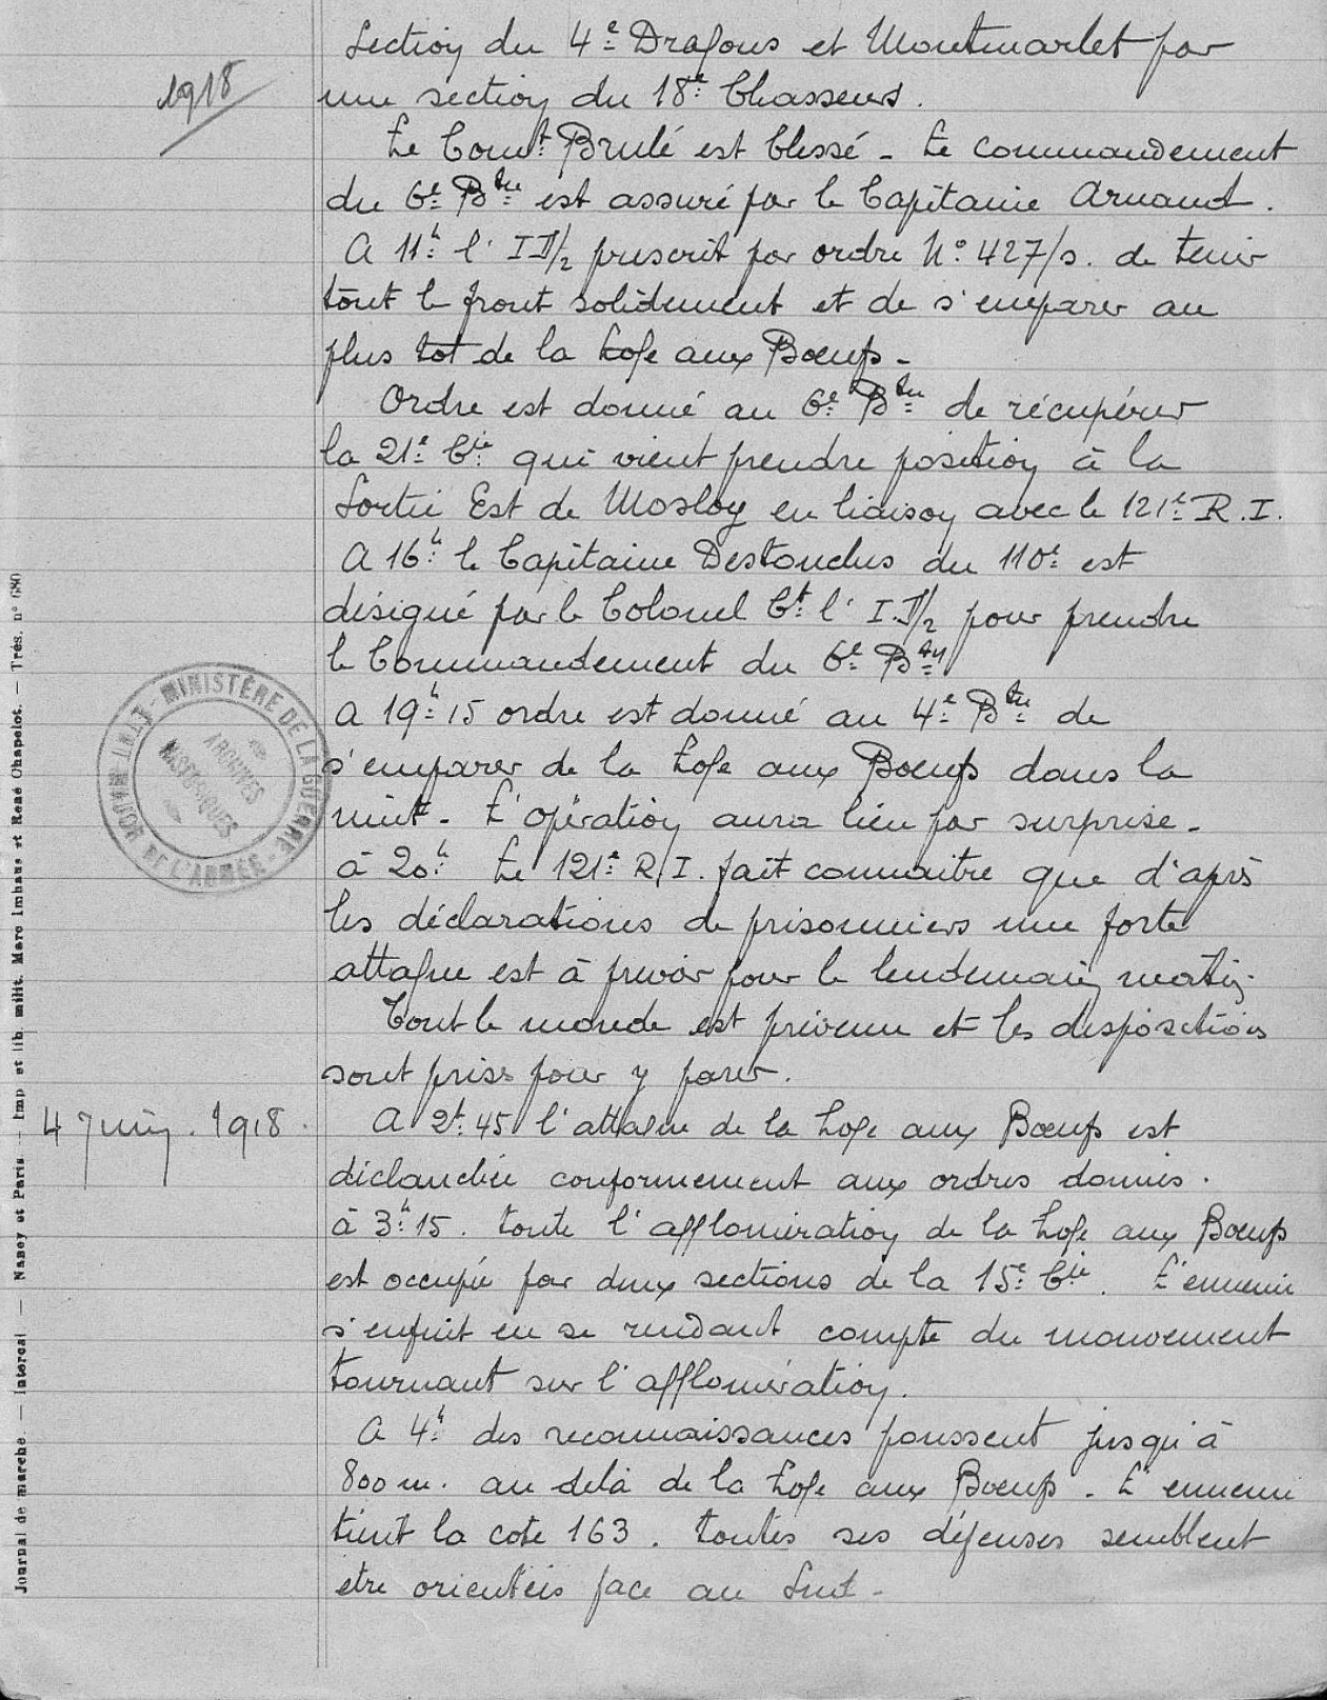 Section du 4e Dragons et Montmarlet par
1918
une section du 18e Chasseurs.
Le Comt Brulé est blessé - Le commandement
du 6e Bton est assuré par le Capitaine Arnaud.
A 11h l'ID/2 prescrit par ordre N° 427/s. de tenir
tout le front solidement et de s'emparer au
plus tot de la Loge aux Boeufs -
Ordre est donné au 6e Bton de récupérer
la 21e Cie qui vient prendre position à la
Sortie Est de Mosloy en liaison avec le 121e R.I.
A 16h le Capitaine Destouches du 110e est
désigné par le Colonel Ct l'I.D/2 pour prendre
le Commandement du 6e Bton
A 19h15 ordre est donné au 4e Bton de
s'emparer de la Loge aux Boeufs dans la
nuit - L'opération aura lieu par surprise -
à 20h Le 121e R.I. fait connaitre que d'après
les déclarations de prisonniers une forte
attaque est à prevoir pour le lendemain matin.
Tout le monde est prévenu et les dispositions
sont prises pour y parer.
4 Juin . 1918
A 2h45 l'attaque de la Loge aux Boeufs est
déclanchée conformement aux ordres donnés.
à 3h15. toute l'agglomération de la Loge aux Boeufs
est occupée par deux sections de la 15e Cie. L'ennemi
s'enfuit en se rendant compte du mouvement
tournant sur l'agglomération.
A 4h des reconnaissances poussent jusqu'à
800 m. au delà de la Loge aux Boeufs - L'ennemi
tient la cote 163. toutes ses défenses semblent
etre orientées face au Sud -
MINISTÈRE DE LA GUERRE - ÉTAT-MAJOR DE L'ARMÉE -
ARCHIVES
HISTORIQUES
Journal de marche — Intercal — Nancy et Paris — Imp et lib milit. Marc Imhaus et René Chapelot. — Trés. n° 680